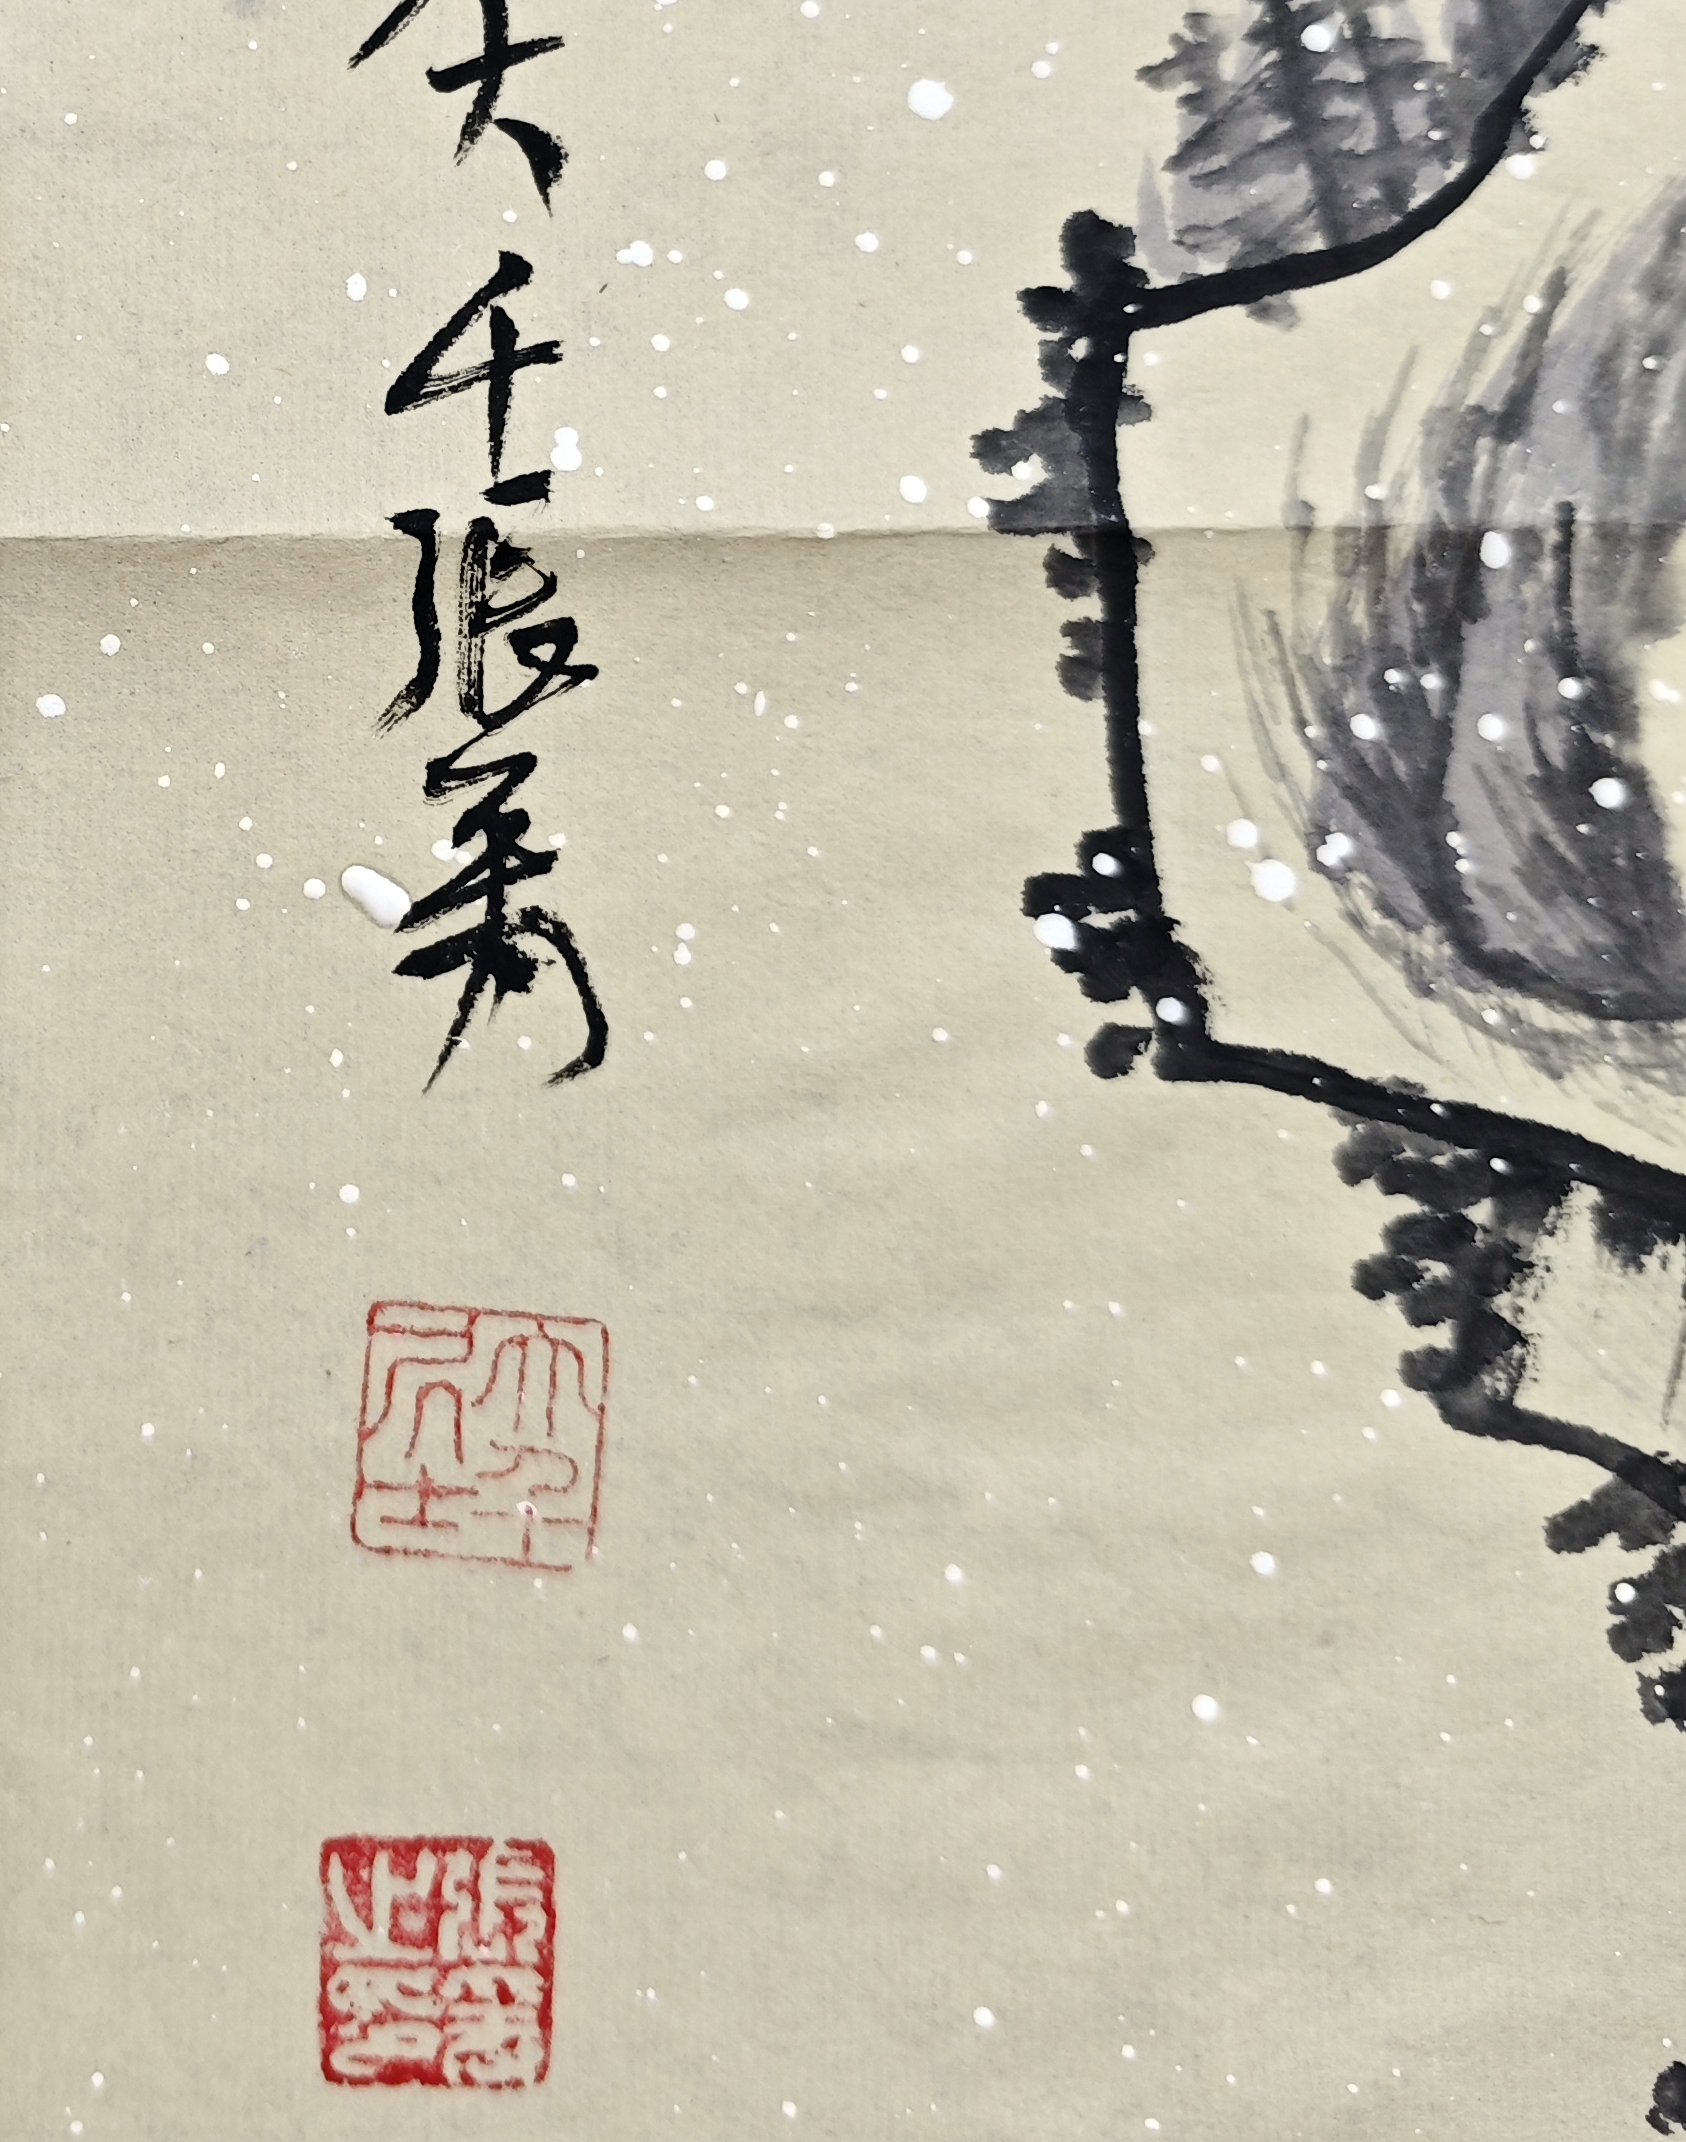 大千張爰
大千居士
張爰之印